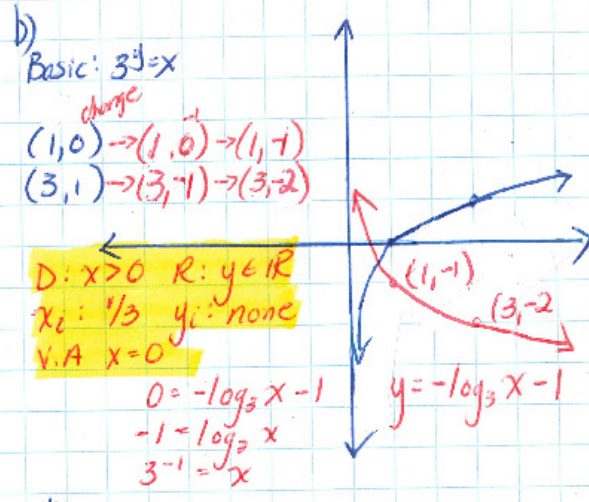 b)
Basic: 3^y=x
change
(1,0)→(1,0^-1)→(1,-1)
(3,1)→(3,-1)→(3,-2)
D: x>0 R: y∈ℝ
x_i: 1/3 y_i: none
V.A x=0
(1,-1)
(3,-2
0=-log₃ x-1
y=-log₃ x-1
-1=log₃ x
3^-1=x